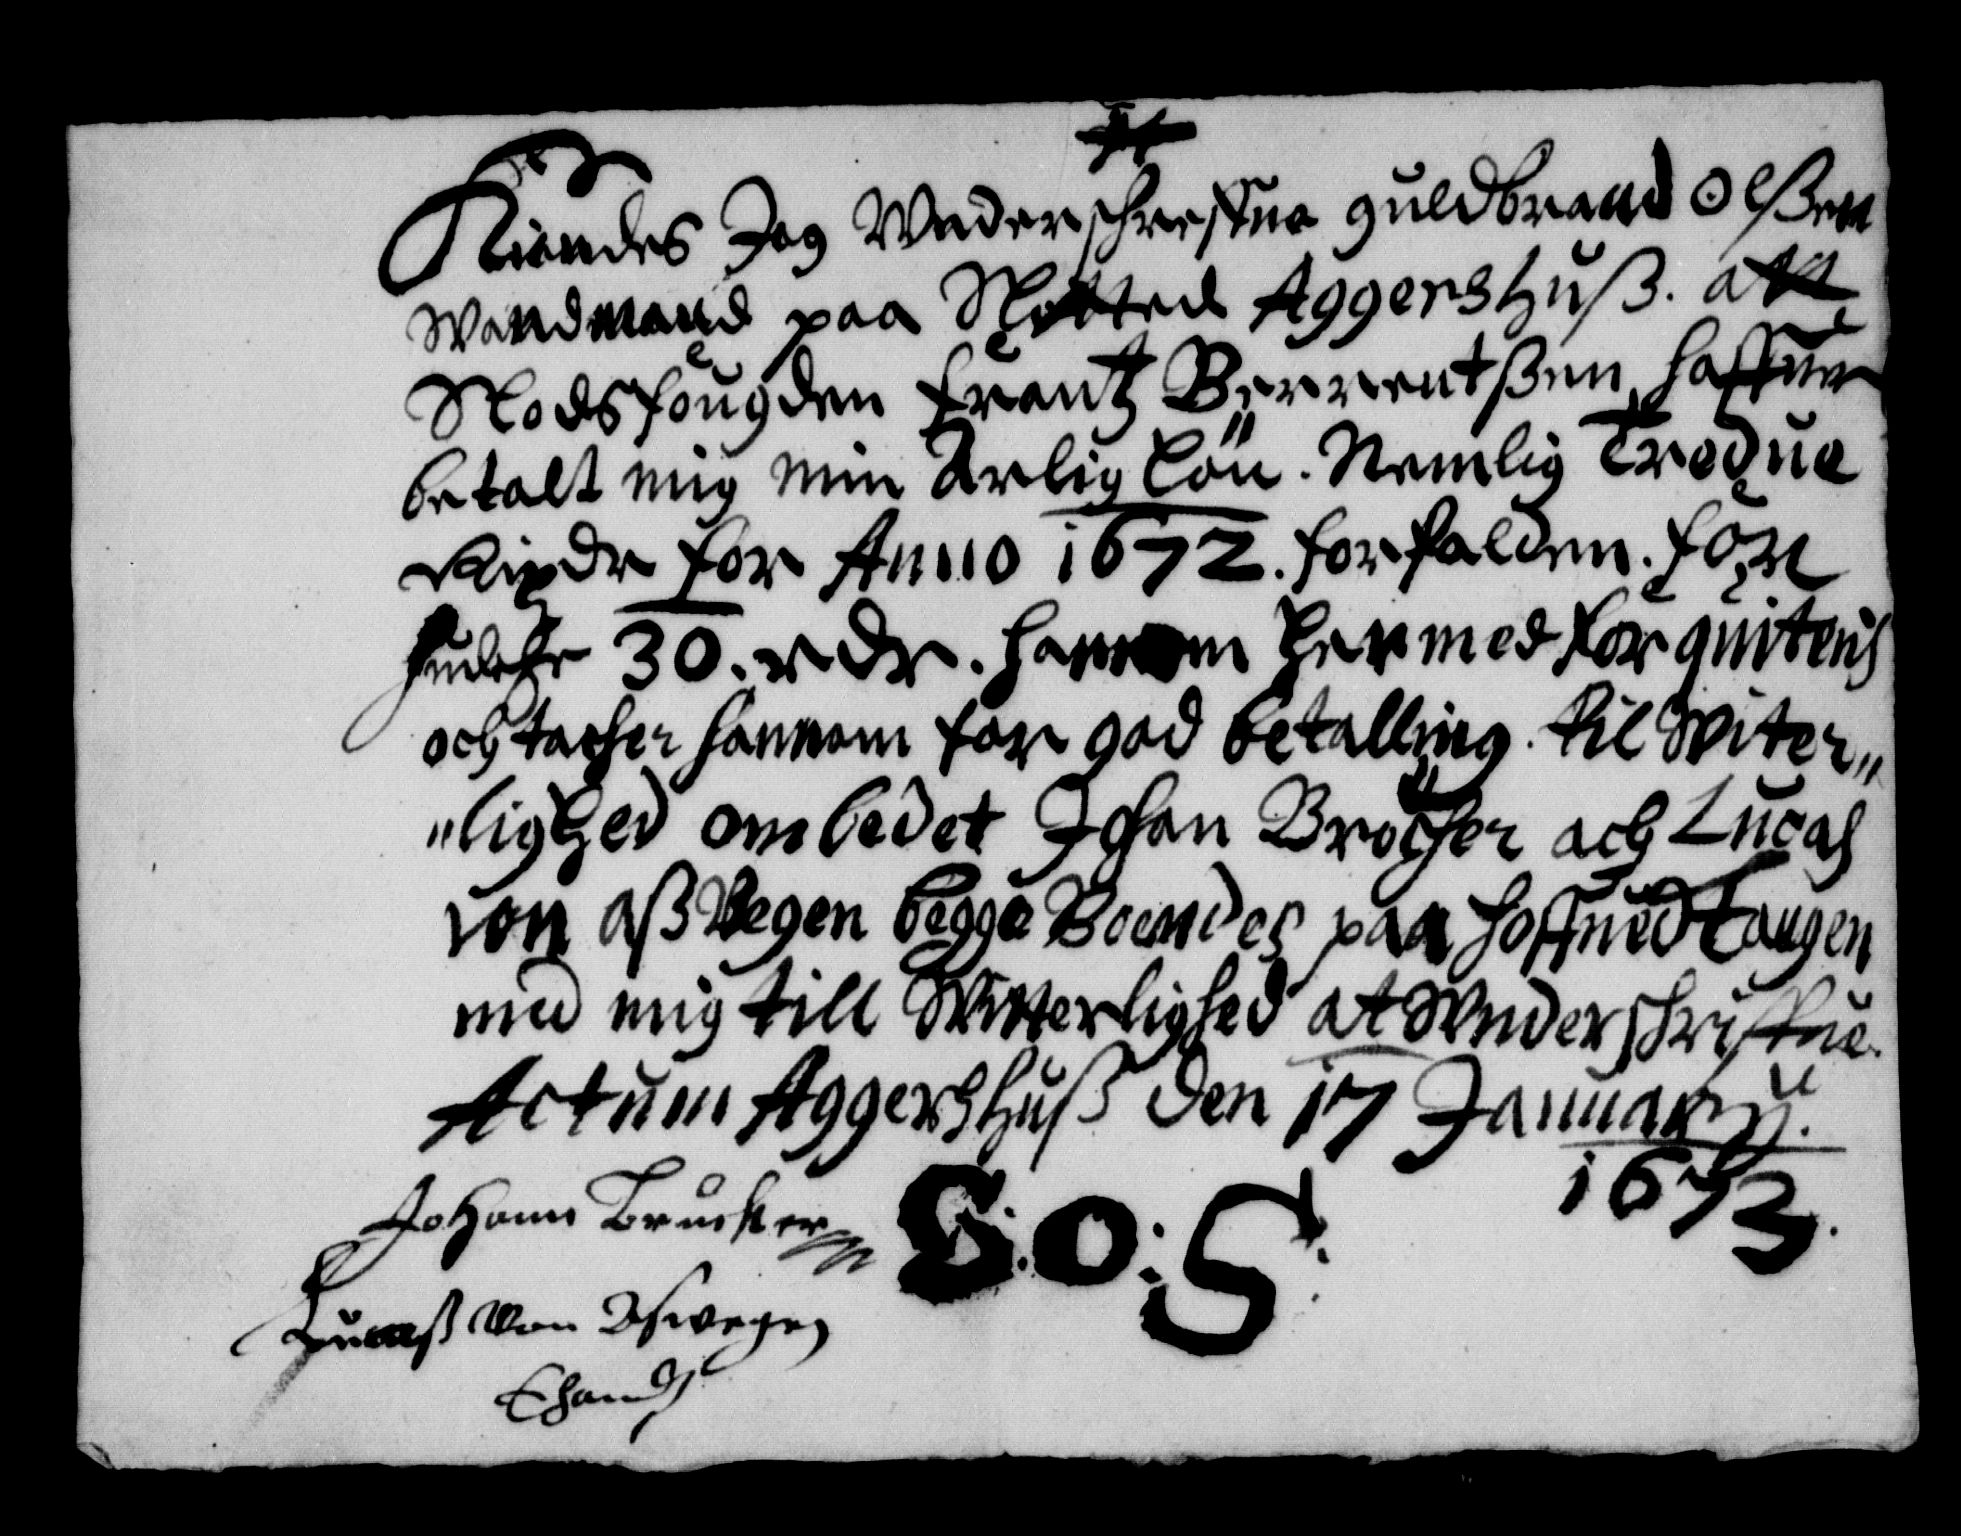 Kiendes Jeg Vnderschreffne guldbrand Olßen
Wandmand paa Slotted Aggershuß. att
Slodsfougden Frantz Berrentßen haffuer
betalt mig min Aarlig Lön. Nemlig Tredue
Rixdr for Anno 1672. forfalden. for
huilche 30. rdr. hannem hermed for quiteris
och tacker hannem for god betalling. til Witer„
„lighed ombedet Johan Bröcker och Lucas
von aßwegen begge Boendes paa Hoffuedtangen
med mig till Witterlighed at Vnderschriffue.
Actum Aggershuß den 17 January.
1673.
Johann Brucker
G: O: S:
Lucaß Von Aswegen
Ehand